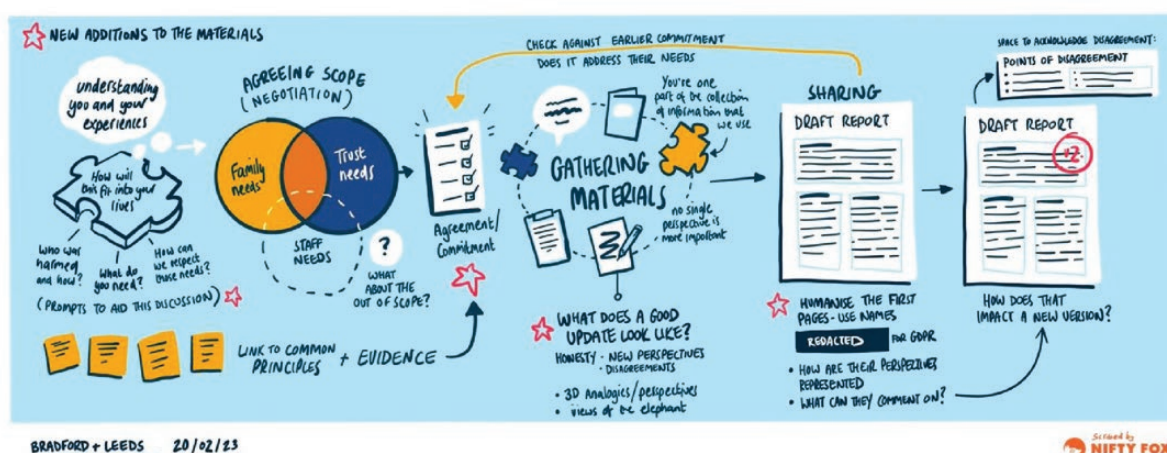 NEW ADDITIONS TO THE MATERIALS
understanding
you and your
experiences
How will
this fit into your
lives
Who was
harmed
and how?
What do
you need?
How can
we respect
those needs?
(PROMPTS TO AID THIS DISCUSSION)
AGREEING SCOPE
(NEGOTIATION)
Family
needs
Trust
needs
STAFF
NEEDS
?
WHAT
ABOUT THE
OUT OF SCOPE?
LINK TO COMMON
PRINCIPLES
+ EVIDENCE
Agreement/
Commitment
CHECK AGAINST EARLIER COMMITMENT
DOES IT ADDRESS THEIR NEEDS
GATHERING
MATERIALS
You're one
part of the collection
of information that
we use
no single
perspective is
more important
WHAT DOES A GOOD
UPDATE LOOK LIKE?
HONESTY · NEW PERSPECTIVES
· DISAGREEMENTS
• 3D Analogies/perspectives
• views of the elephant
SHARING
DRAFT REPORT
HUMANISE THE FIRST
PAGES - USE NAMES
REDACTED FOR GDPR
• HOW ARE THEIR PERSPECTIVES
REPRESENTED
• WHAT CAN THEY COMMENT ON?
SPACE TO ACKNOWLEDGE DISAGREEMENT:
POINTS OF DISAGREEMENT
DRAFT REPORT
HOW DOES THAT
IMPACT A NEW VERSION?
BRADFORD + LEEDS 20/02/23
Scribed by
NIFTY FOX